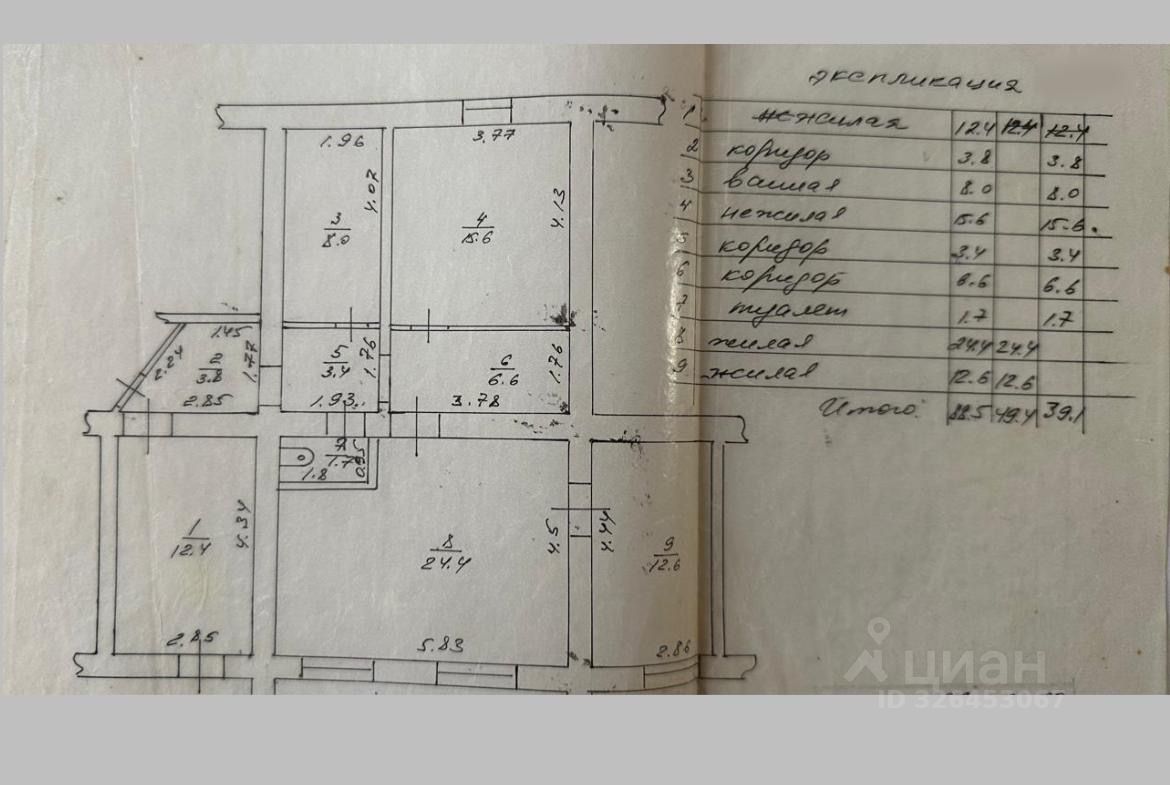 экспликация
1 нежилая 12.4 12.4 12.4
2 коридор 3.8 3.8
3 ванная 8.0 8.0
4 нежилая 15.6 15.6.
5 коридор 3.4 3.4
6 коридор 6.6 6.6
7 туалет 1.7 1.7
8 жилая 24.4 24.4
9 жилая 12.6 12.6
Итого: 88.5 49.4 39.1
1.96
3.77
3
8.0
4.07
4
15.6
4.13
1.45
2.24
2
3.8
1.77
2.85
5
3.4
1.76
1.93
6
6.6
1.76
3.78
7
1.7
0.95
1.8
1
12.4
4.34
2.85
8
24.4
4.5
5.83
4.44
9
12.6
2.86
циан
ID 326453067